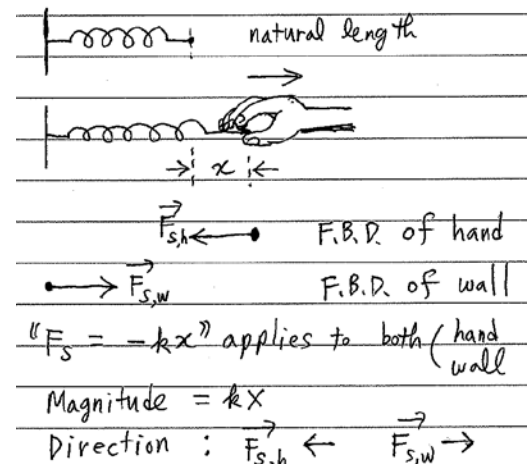 natural length
x
F⃗s,h F.B.D. of hand
F⃗s,w F.B.D. of wall
"Fs = -kx" applies to both ( hand
wall
Magnitude = kx
Direction : F⃗s,h ← F⃗s,w →